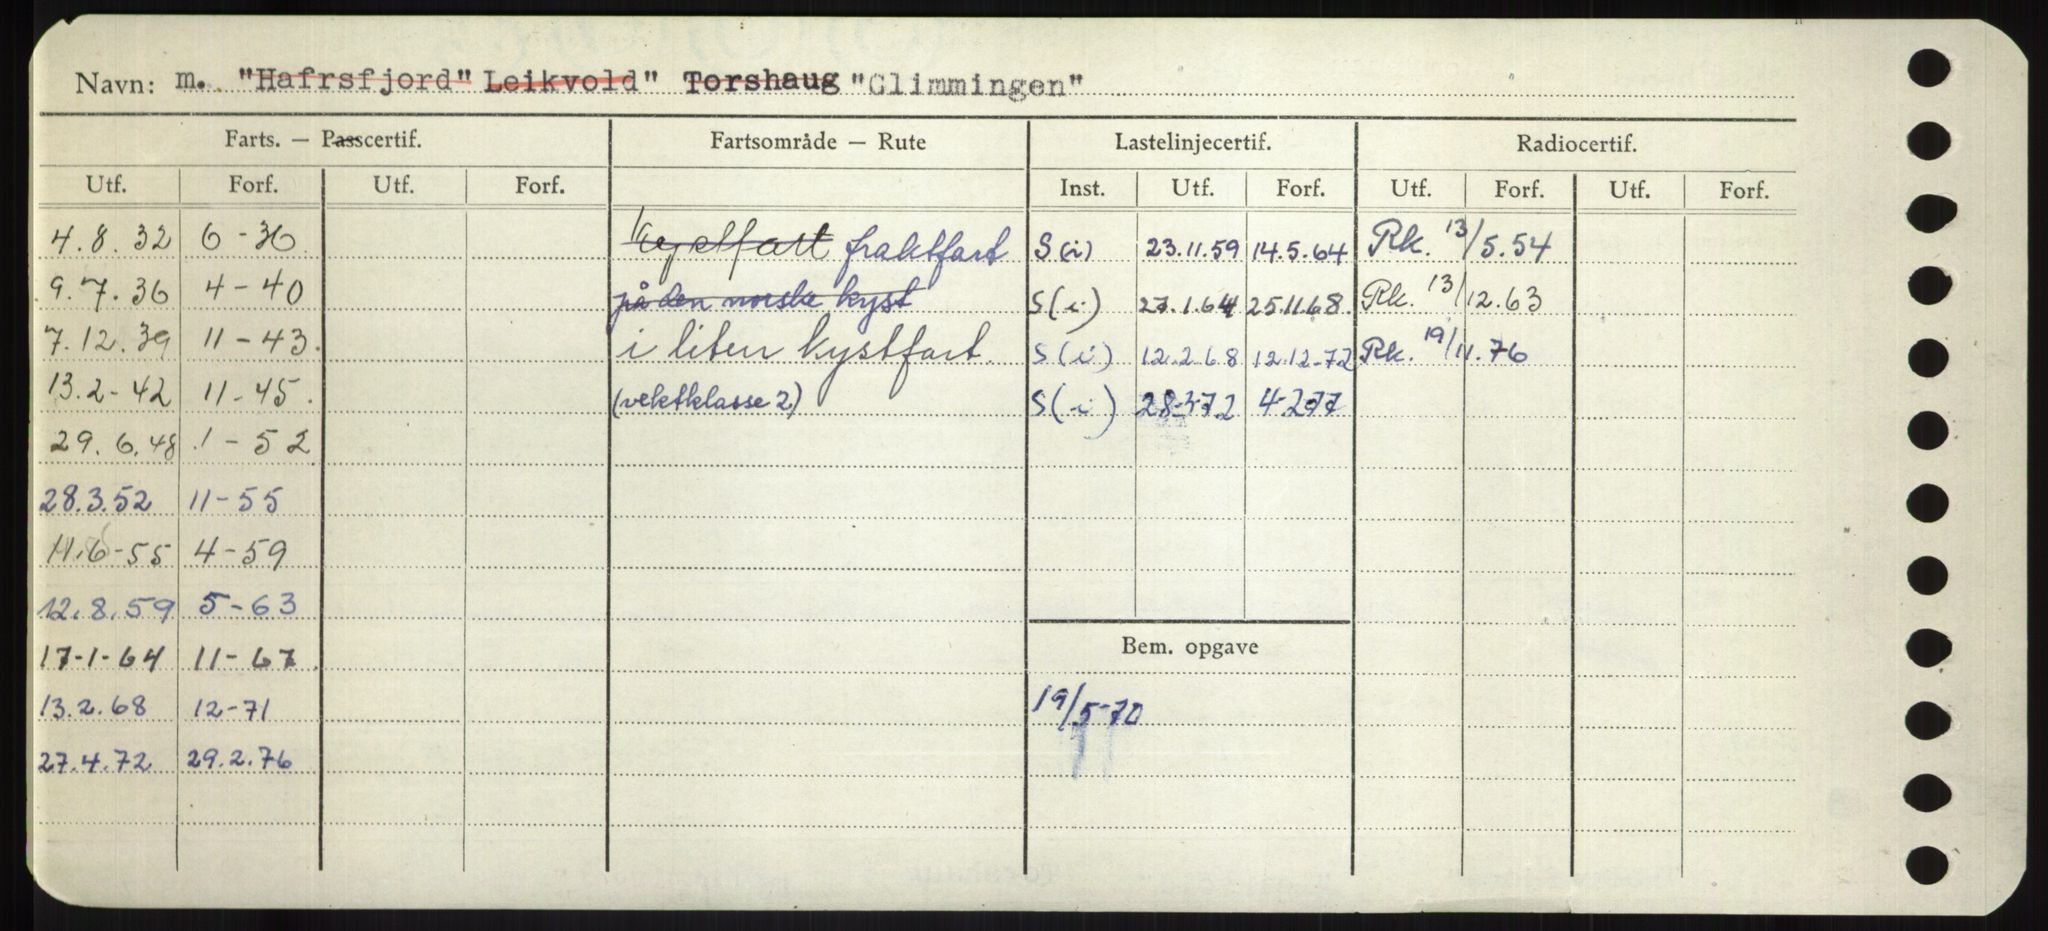 Navn: m. "Hafrsfjord" Leikvold" Torshaug "Glimmingen"
Farts. — Passcertif. Fartsområde — Rute Lastelinjecertif. Radiocertif.
Utf. Forf. Utf. Forf. Inst. Utf. Forf. Utf. Forf. Utf. Forf.
4.8.32 6-36 Kystfart fraktfart S(i) 23.11.59 14.5.64 Rk. 13/5.54
9.7.36 4-40 på den norske kyst S(i) 27.1.64 25.11.68. Rk. 13/12.63
7.12.39 11-43. i liten kystfart. S(i) 12.2.68 12.12.72 Rk. 19/11.76
13.2-42 11-45. (vektklasse 2) S(i) 28-3-72 4-2-77
29.6.48 1-52
28.3.52 11-55
11.6-55 4-59
12.8.59 5-63
17-1-64 11-67. Bem. opgave
13.2.68 12-71 19/5-70
27.4.72 29.2.76